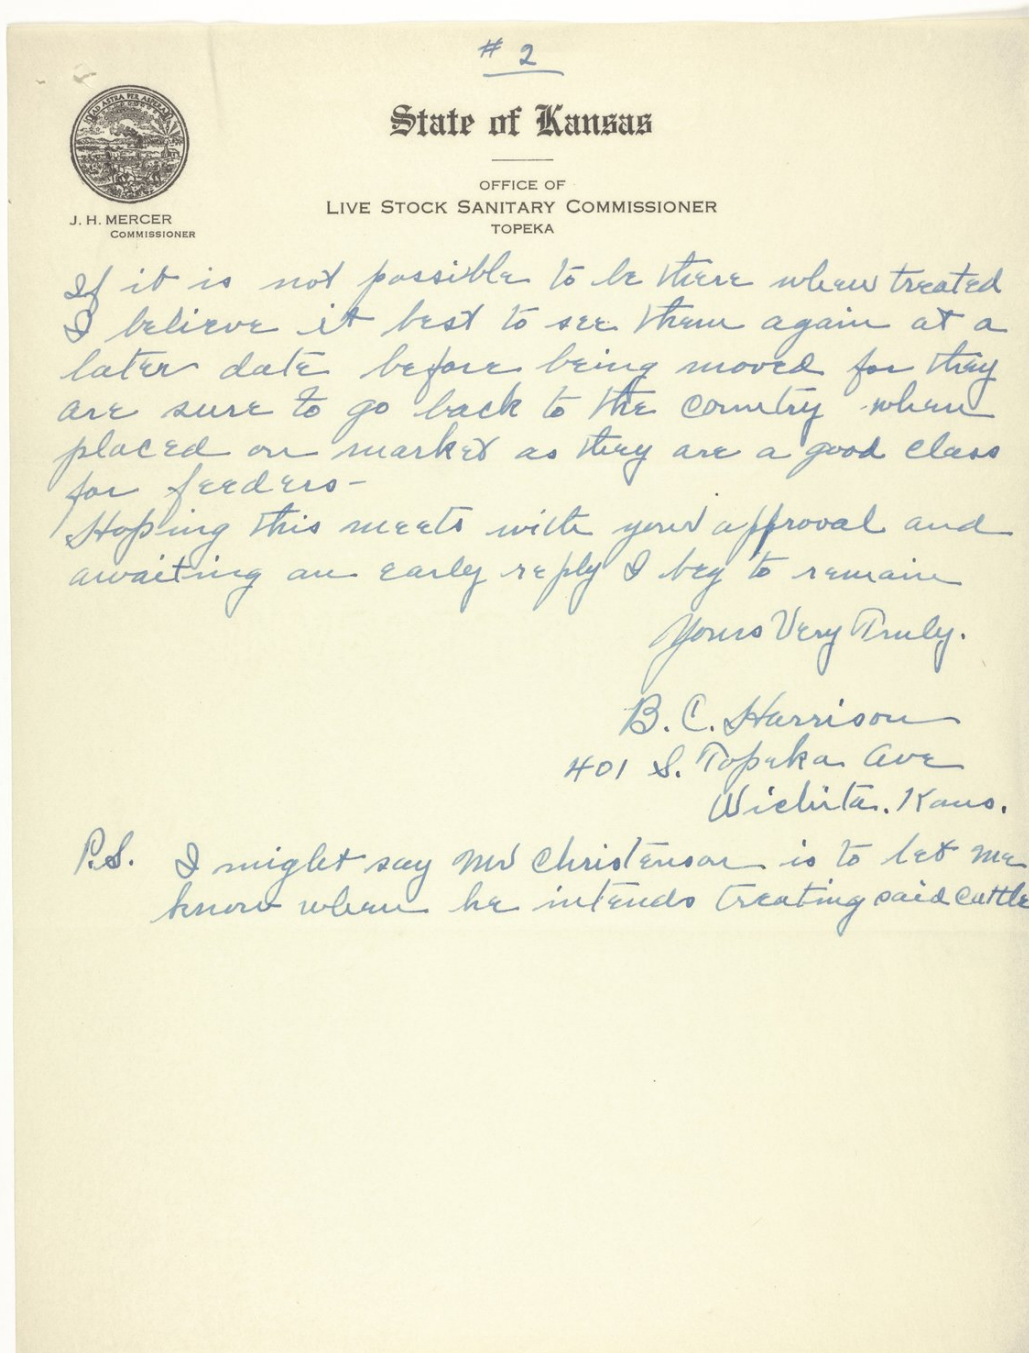 # 2
AD ASTRA PER ASPERA
State of Kansas
OFFICE OF
LIVE STOCK SANITARY COMMISSIONER
TOPEKA
J. H. MERCER
COMMISSIONER
If it is not possible to be there when treated
I believe it best to see them again at a
later date before being moved for they
are sure to go back to the country when
placed on market as they are a good class
for feeders-
Hoping this meets with your approval and
awaiting an early reply I beg to remain
Yours Very Truly.
B. C. Harrison
401 S. Topeka Ave
Wichita. Kans.
P.S. I might say Mr Christensen is to let me
know when he intends treating said cattle